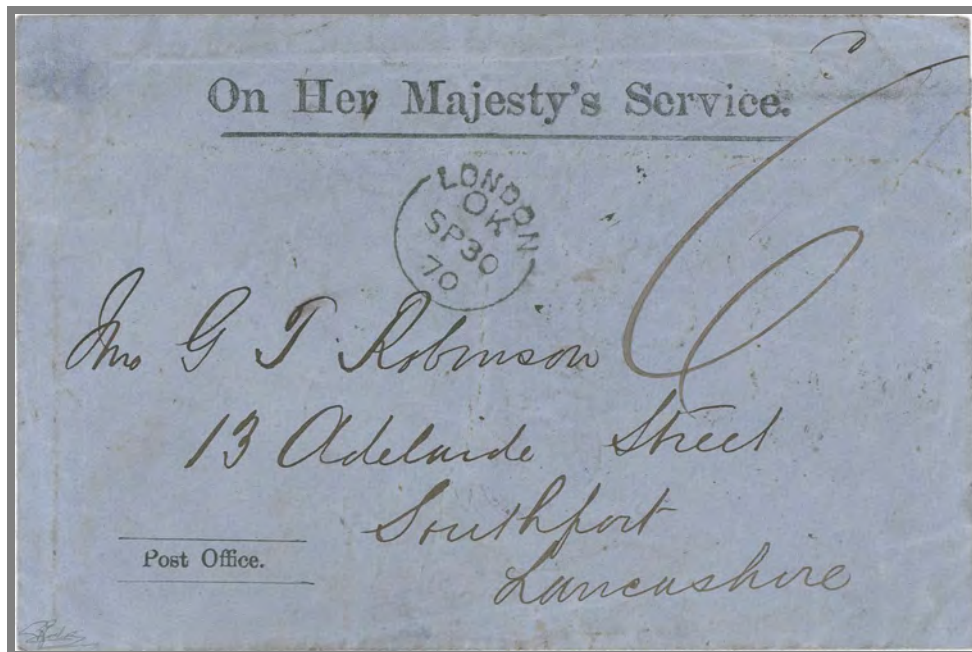 On Her Majesty's Service.
LONDON
OK
SP30
70
6
Mrs G T Robinson
13 Adelaide Street
Southport
Lancashire
Post Office.